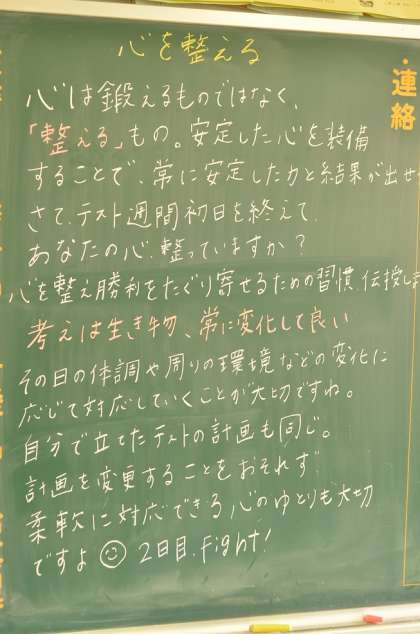 心を整える
心は鍛えるものではなく、
「整える」もの。安定した心を装備
することで、常に安定した力と結果が出せ
さて、テスト週間初日を終えて、
あなたの心、整っていますか？
心を整え勝利をたぐり寄せるための習慣、伝授しま
考えは生き物、常に変化して良い
その日の体調や周りの環境などの変化に
応じて対応していくことが大切ですね。
自分で立てたテストの計画も同じ。
計画を変更することをおそれず
柔軟に対応できる心のゆとりも大切
ですよ☺ 2日目、Fight!
・連絡